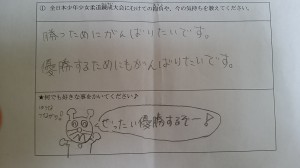 ① 全日本少年少女武道錬成大会にむけての抱負や、今の気持ちを教えてください。
勝つためにがんばりたいです。
優勝するためにもがんばりたいです。
★何でも好きな事をかいてください♪
ぜったい優勝するぞー♪